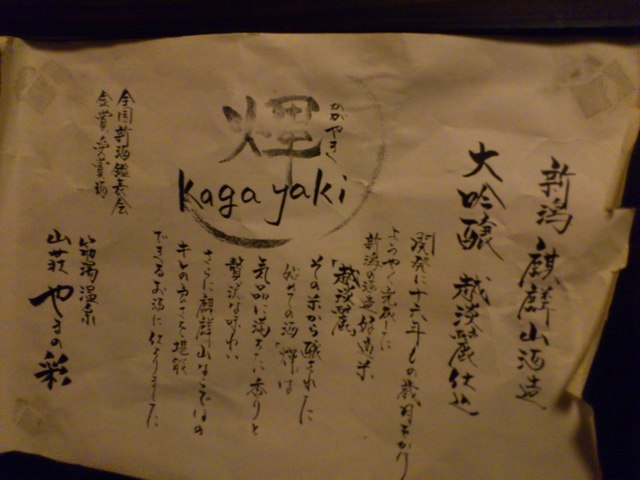 新潟 麒麟山酒造
大吟醸 越淡麗仕込
輝
かがやき
kagayaki
開発に十六年もの歳月をかけ
ようやく完成した
新潟の酒造好適米
「越淡麗」
その米から醸された
始めての酒「輝」は
気品に満ちた香りと
贅沢な味わい
さらに麒麟山ならではの
キレの良さを堪能
できるお酒に仕りました
全国新酒鑑表会
金賞受賞酒
山荘 やまの彩